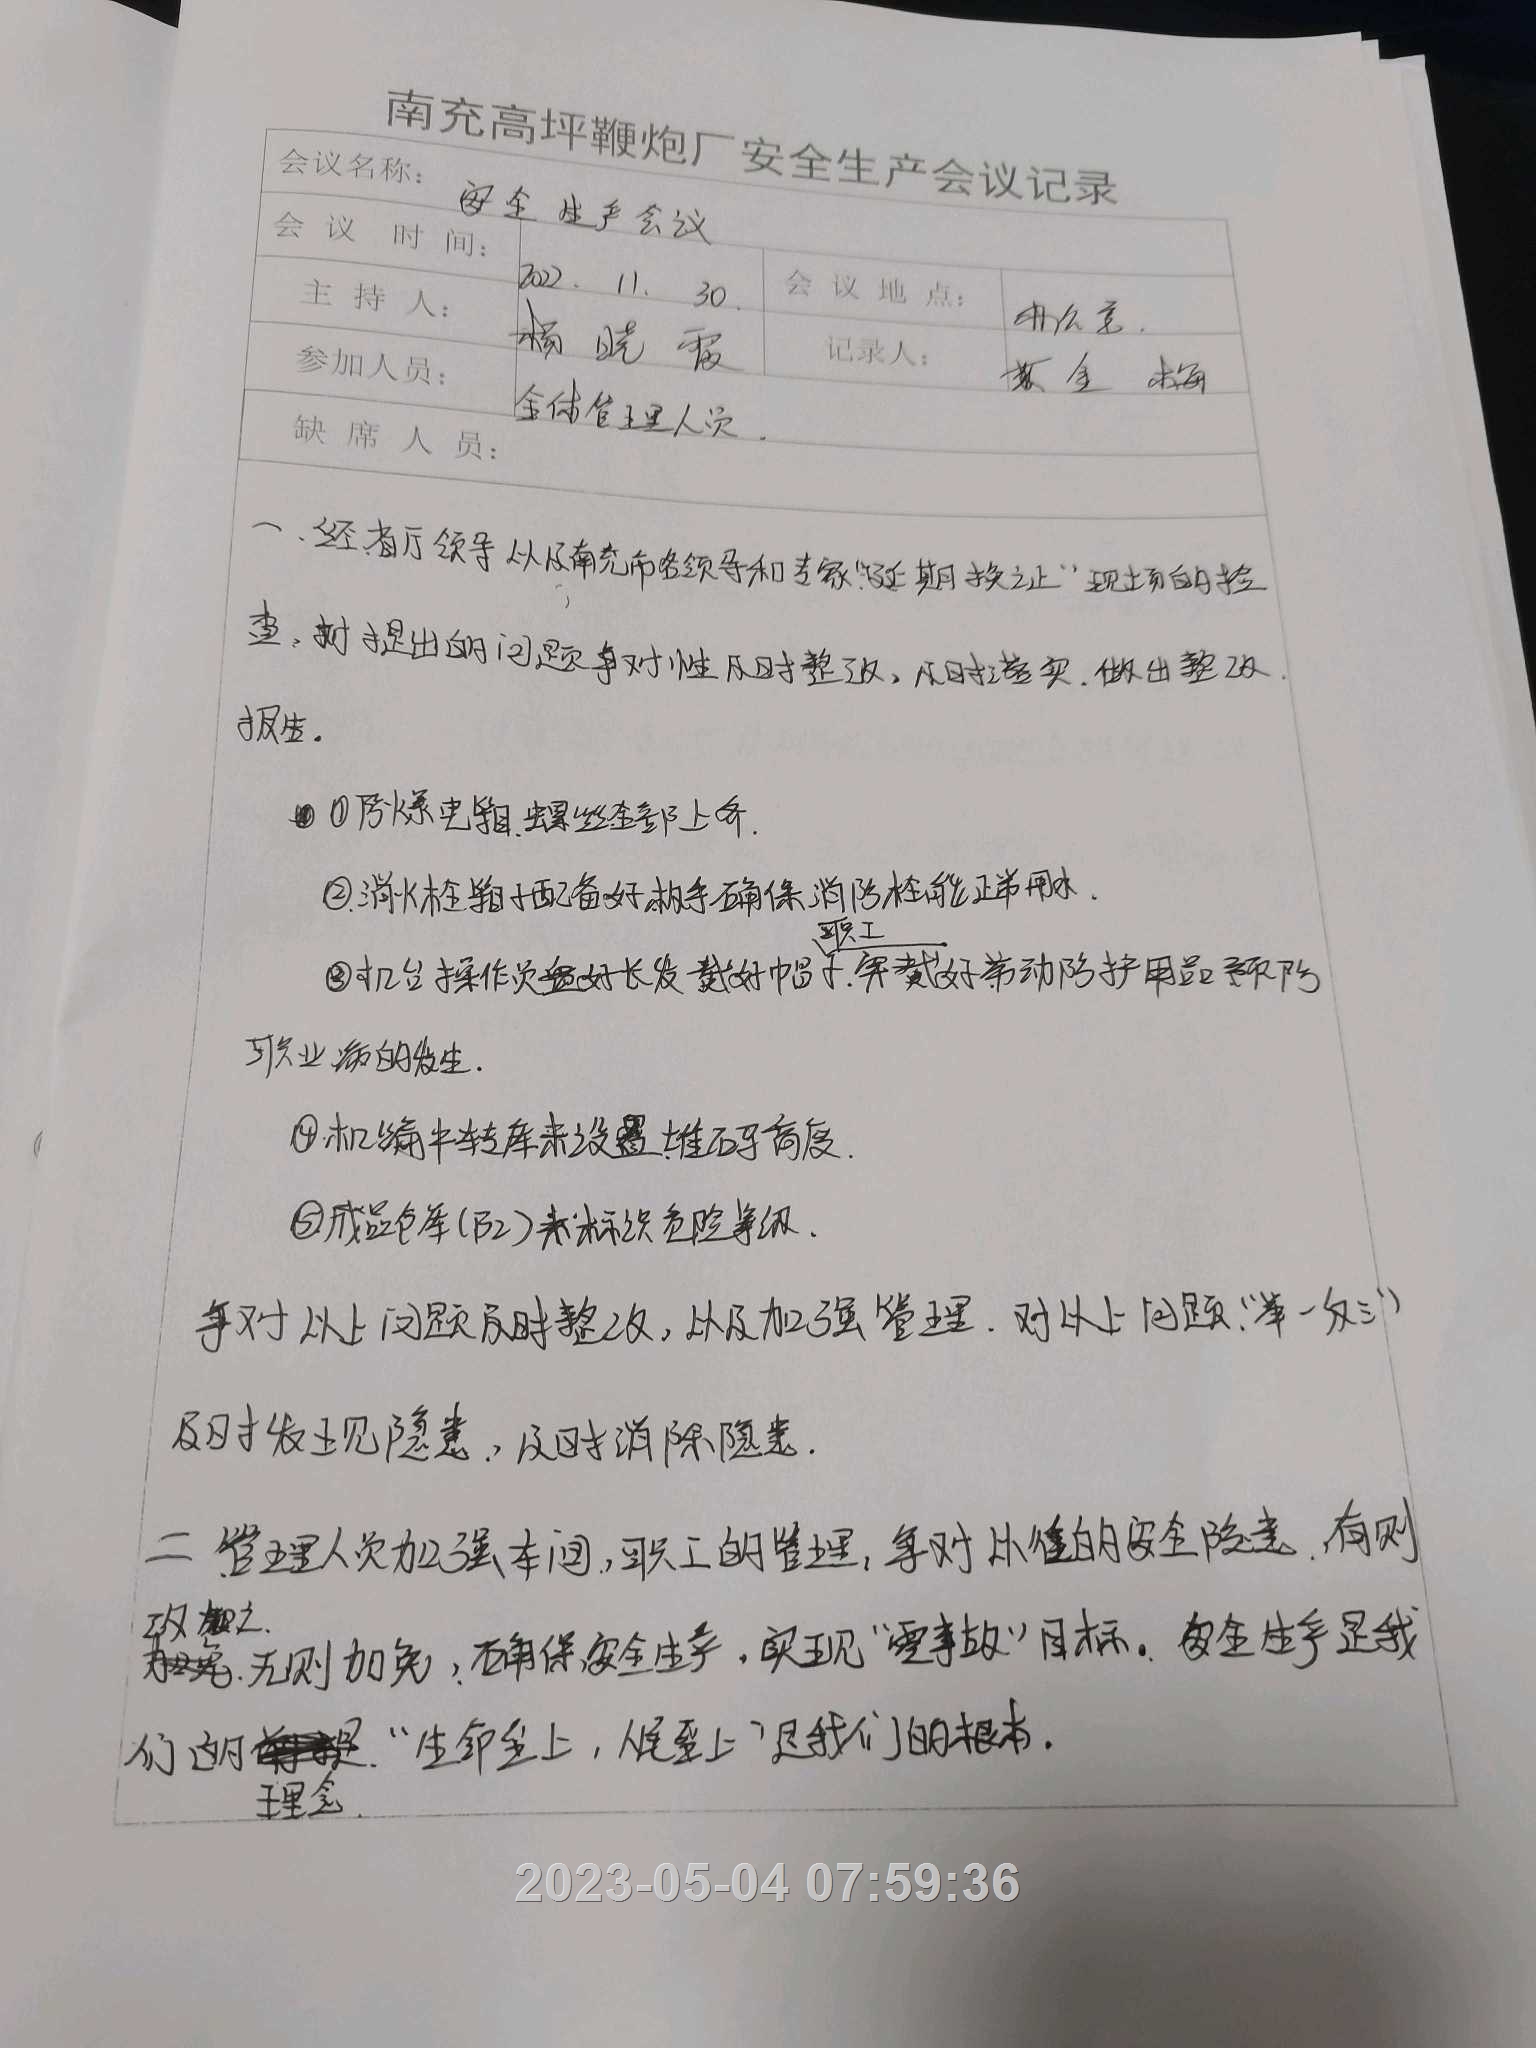 南充高坪鞭炮厂安全生产会议记录
会议名称： 安全生产会议
会议时间： 2022. 11. 30. 会议地点： 办公室.
主持人： 杨晓霞 记录人： 黄金梅
参加人员： 全体管理人员.
缺席人员：
一、经省厅领导以及南充市各领导和专家“延期换证”现场的检
查，对提出的问题争对性及时整改，及时落实.做出整改.
报告.
①防爆电箱.螺丝全部上齐.
②.消火栓箱子配备好扳手确保消防栓能正常用水.
职工
③机台操作员盘好长发戴好帽子.穿戴好劳动防护用品预防
职业病的发生.
④.机编中转库未设置堆码高度.
⑤成品仓库(B2)未标识危险等级.
争对以上问题及时整改，以及加强管理.对以上问题“举一反三”
及时发现隐患，及时消除隐患.
二 管理人员加强车间，职工的管理，争对从在的安全隐患.有则
改加之.
无则加免，确保安全生产，实现“零事故”目标。安全生产是我
们的 “生命至上，人民至上”是我们的根本.
理念.
2023-05-04 07:59:36